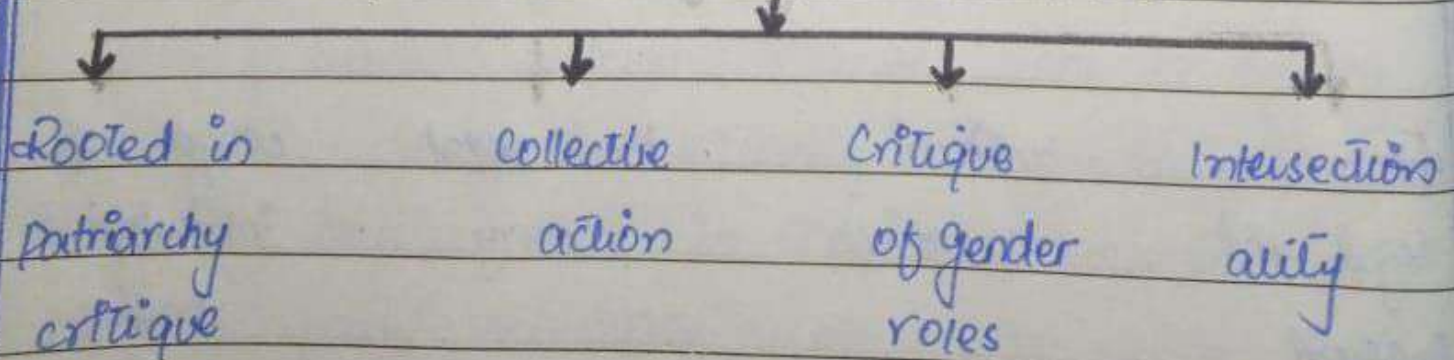 Rooted in
patriarchy
critique
Collective
action
Critique
of gender
roles
Intersection
ality